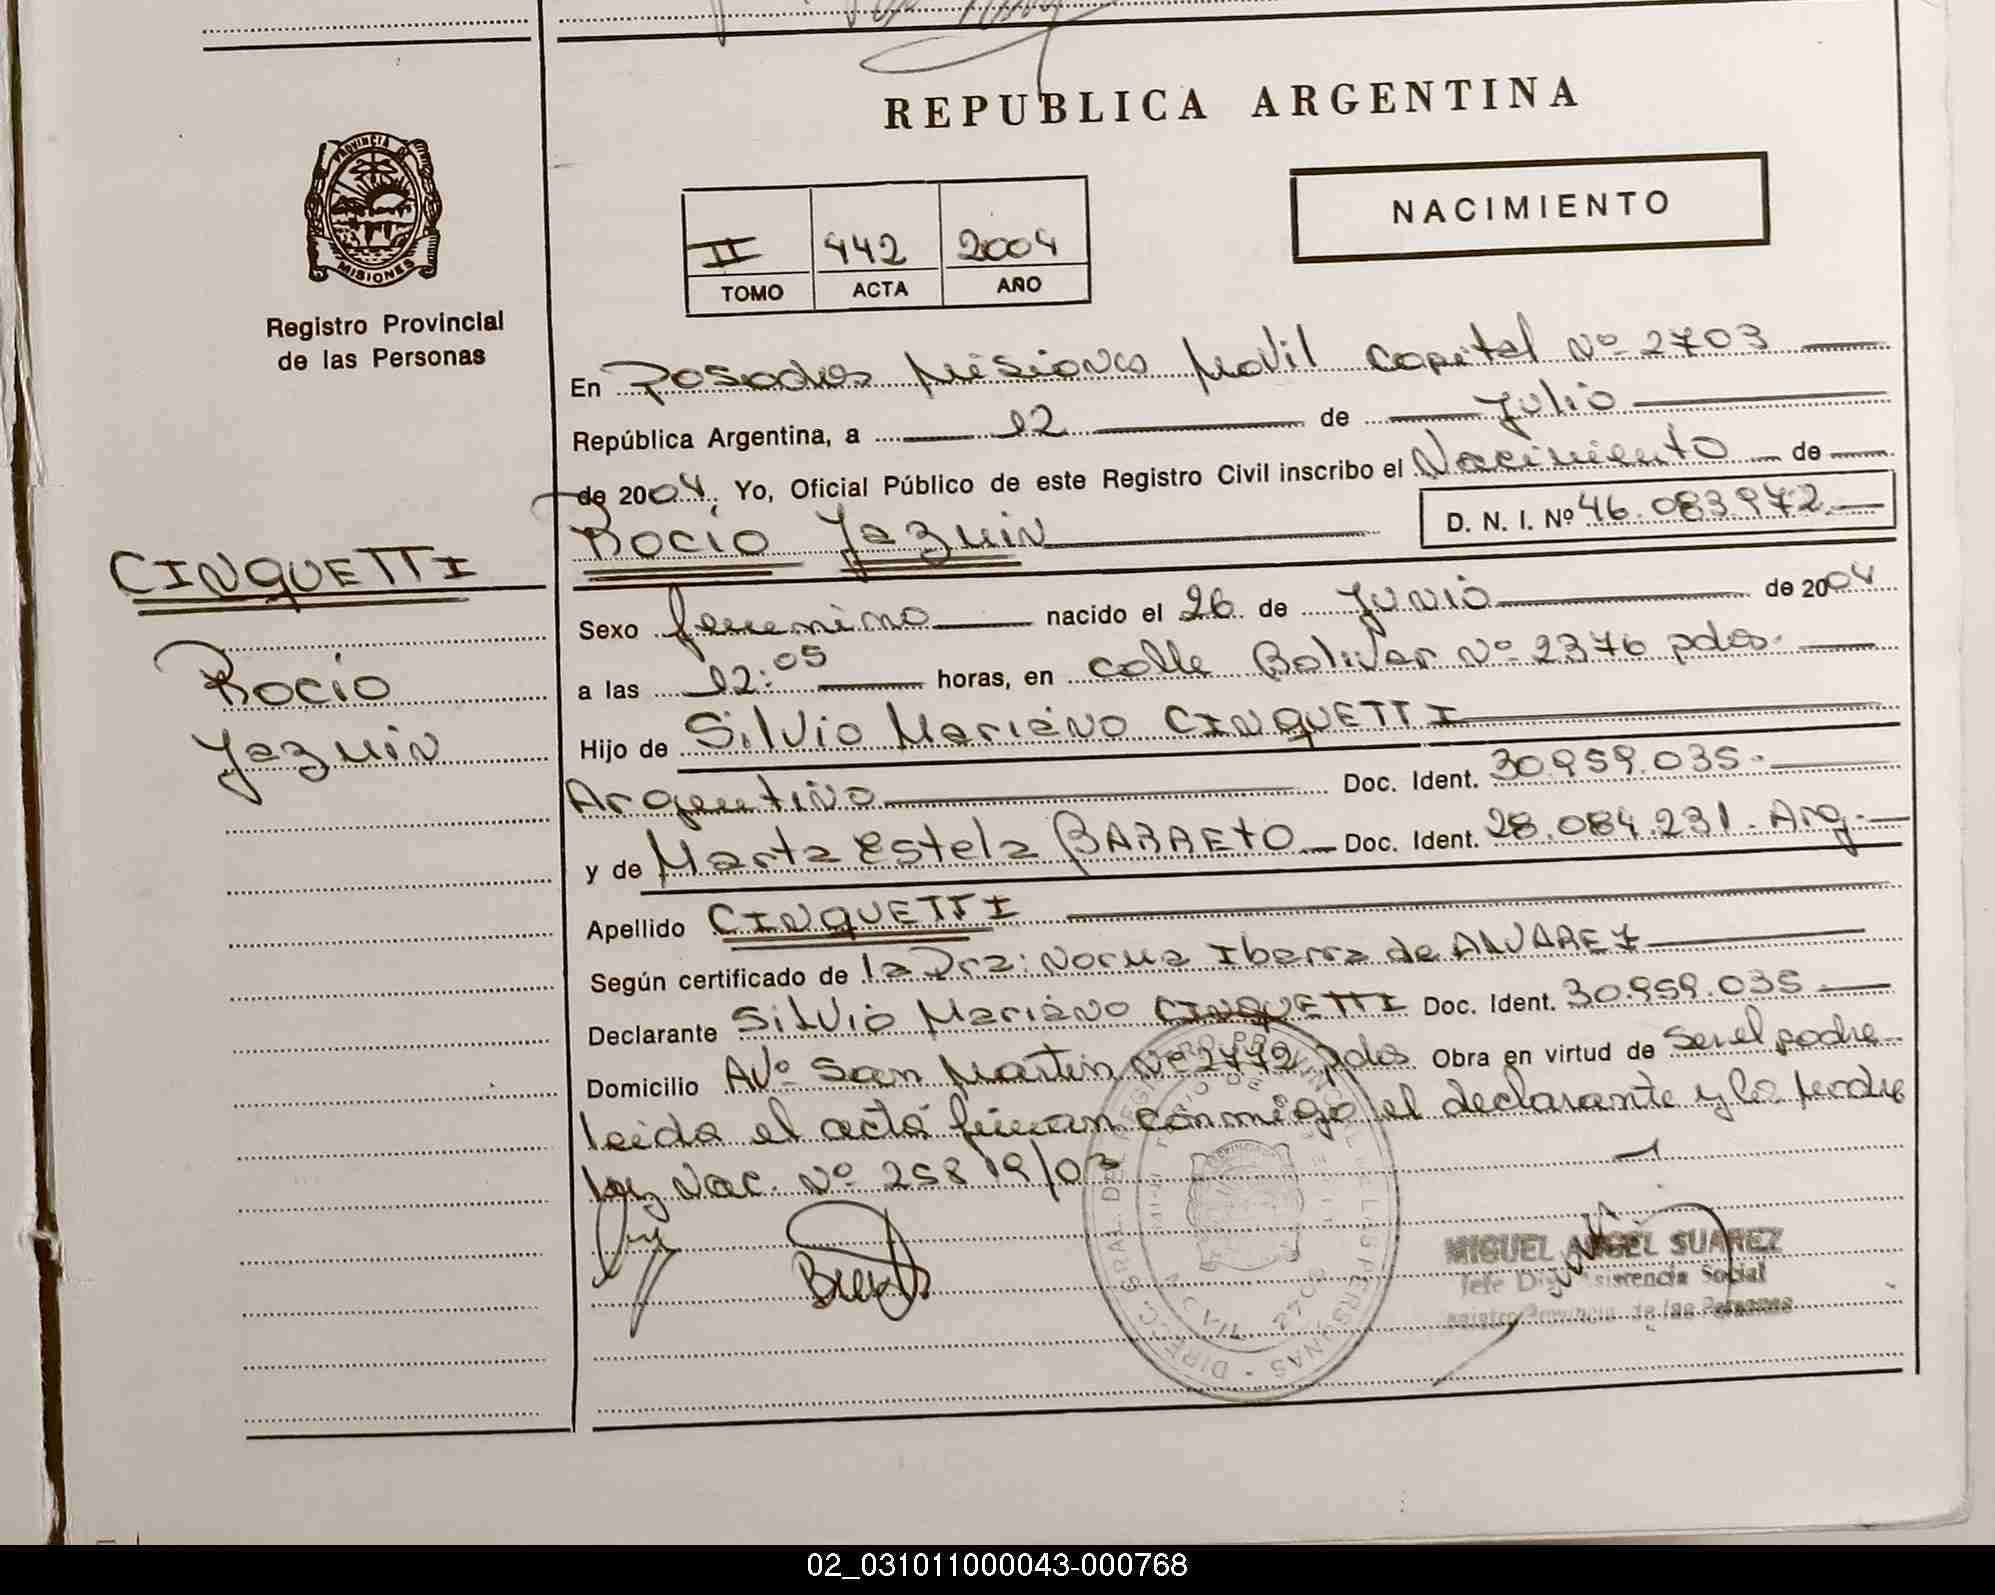 REPUBLICA ARGENTINA
NACIMIENTO
II 442 2004
TOMO ACTA AÑO
PROVINCIA DE MISIONES
Registro Provincial
de las Personas
CINQUETTI
Rocio
Yazmin
En Posadas Misiones Movil Capital Nº 2703
República Argentina, a 12 de Julio
de 2004, Yo, Oficial Público de este Registro Civil inscribo el Nacimiento de
Rocio Yazmin D. N. I. Nº 46.083.972
Sexo femenino nacido el 26 de Junio de 2004
a las 12:05 horas, en calle Bolivar Nº 2376 pdas.
Hijo de Silvio Mariano CINQUETTI
Argentino Doc. Ident. 30.959.035.
y de Marta Estela BARRETO Doc. Ident. 28.084.231. Arg.
Apellido CINQUETTI
Según certificado de la Dra: Norma Ibarra de ALVAREZ
Declarante Silvio Mariano CINQUETTI Doc. Ident. 30.959.035
Domicilio Avº San Martin Nº 2772 pdas Obra en virtud de ser el padre
leida el acta firman conmigo el declarante y la madre
Ley Nac. Nº 25819/03
MIGUEL ANGEL SUAREZ
Jefe Asistencia Social
de las Personas
02_031011000043-000768